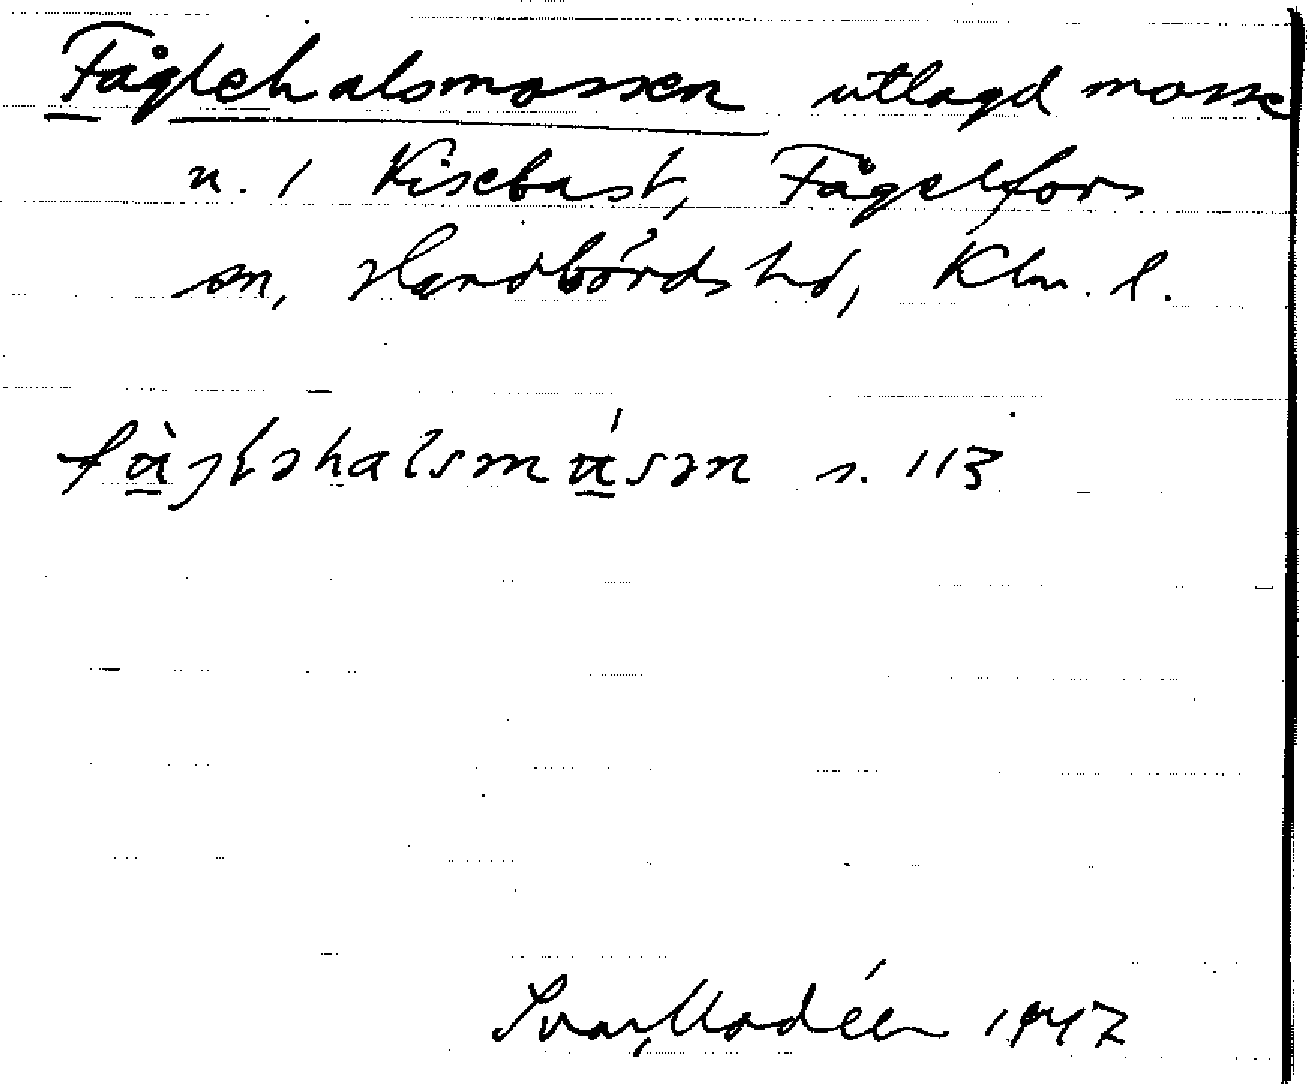 Fåglehalsmossen utlagd mosse
u. 1 Kisebast, Fågelfors
sn, Handbörds hd, Klm. l.
s. 113
Ivar Modéer 1947